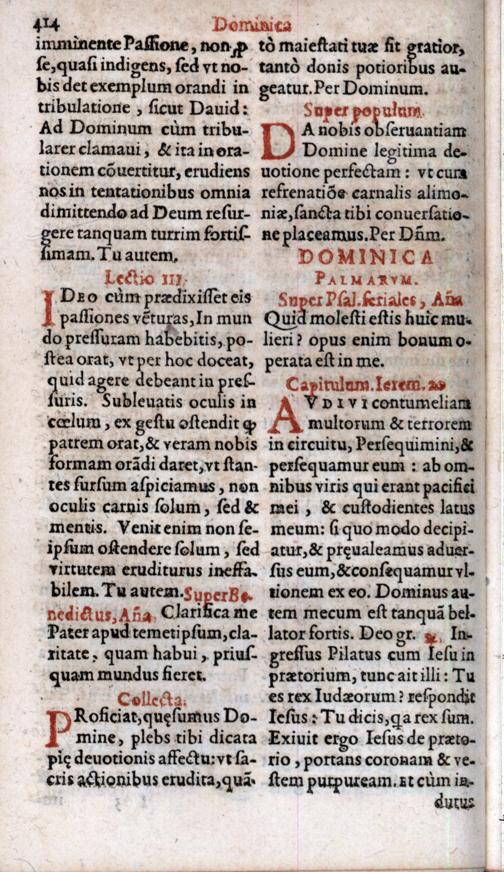 414
Dominica
imminente Paſſione, non ꝓ
ſe, quaſi indigens, ſed vt no-
bis det exemplum orandi in
tribulatione, ſicut Dauid:
Ad Dominum cùm tribu-
larer clamaui, & ita in ora-
tionem cõuertitur, erudiens
nos in tentationibus omnia
dimittendo ad Deum reſur-
gere tanquam turrim fortiſ-
ſimam. Tu autem.
Lectio III.
IDEO cùm prædixiſſet eis
paſſiones vẽturas, In mun
do preſſuram habebitis, po-
ſtea orat, vt per hoc doceat,
quid agere debeant in preſ-
ſuris. Subleuatis oculis in
cœlum, ex geſtu oſtendit ꝙ
patrem orat, & veram nobis
formam orãdi daret, vt ſtan-
tes ſurſum aſpiciamus, non
oculis carnis ſolum, ſed &
mentis. Venit enim non ſe-
ipſum oſtendere ſolum, ſed
virtutem eruditurus ineffa-
bilem. Tu autem. Super Be-
nedictus, Aña. Clarifica me
Pater apud temetipſum, cla-
ritate, quam habui, priuſ-
quam mundus fieret.
Collecta.
PRoficiat, quęſumus Do-
mine, plebs tibi dicata
pię deuotionis affectu: vt ſa-
cris actionibus erudita, quã-
tò maieſtati tuæ ſit gratior,
tantò donis potioribus au-
geatur. Per Dominum.
Super populum.
DA nobis obſeruantiam
Domine legitima de-
uotione perfectam: vt cum
refrenatiõe carnalis alimo-
niæ, ſancta tibi conuerſatio-
ne placeamus. Per Dñm.
DOMINICA
PALMARVM.
Super Pſal. feriales, Aña
Quid moleſti eſtis huic mu-
lieri? opus enim bonum o-
perata eſt in me.
Capitulum. Ierem. 20
AVDIVI contumeliam
multorum & terrorem
in circuitu, Perſequimini, &
perſequamur eum: ab om-
nibus viris qui erant pacifici
mei, & cuſtodientes latus
meum: ſi quo modo decipi-
atur, & pręualeamus aduer-
ſus eum, & conſequamur vl-
tionem ex eo. Dominus au-
tem mecum eſt tanquã bel-
lator fortis. Deo gr. ℟. In-
greſſus Pilatus cum Ieſu in
prætorium, tunc ait illi: Tu
es rex Iudæorum? reſpondit
Ieſus: Tu dicis, q̃a rex ſum.
Exiuit ergo Ieſus de præto-
rio, portans coronam & ve-
ſtem purpuream. Et cùm in-
dutus